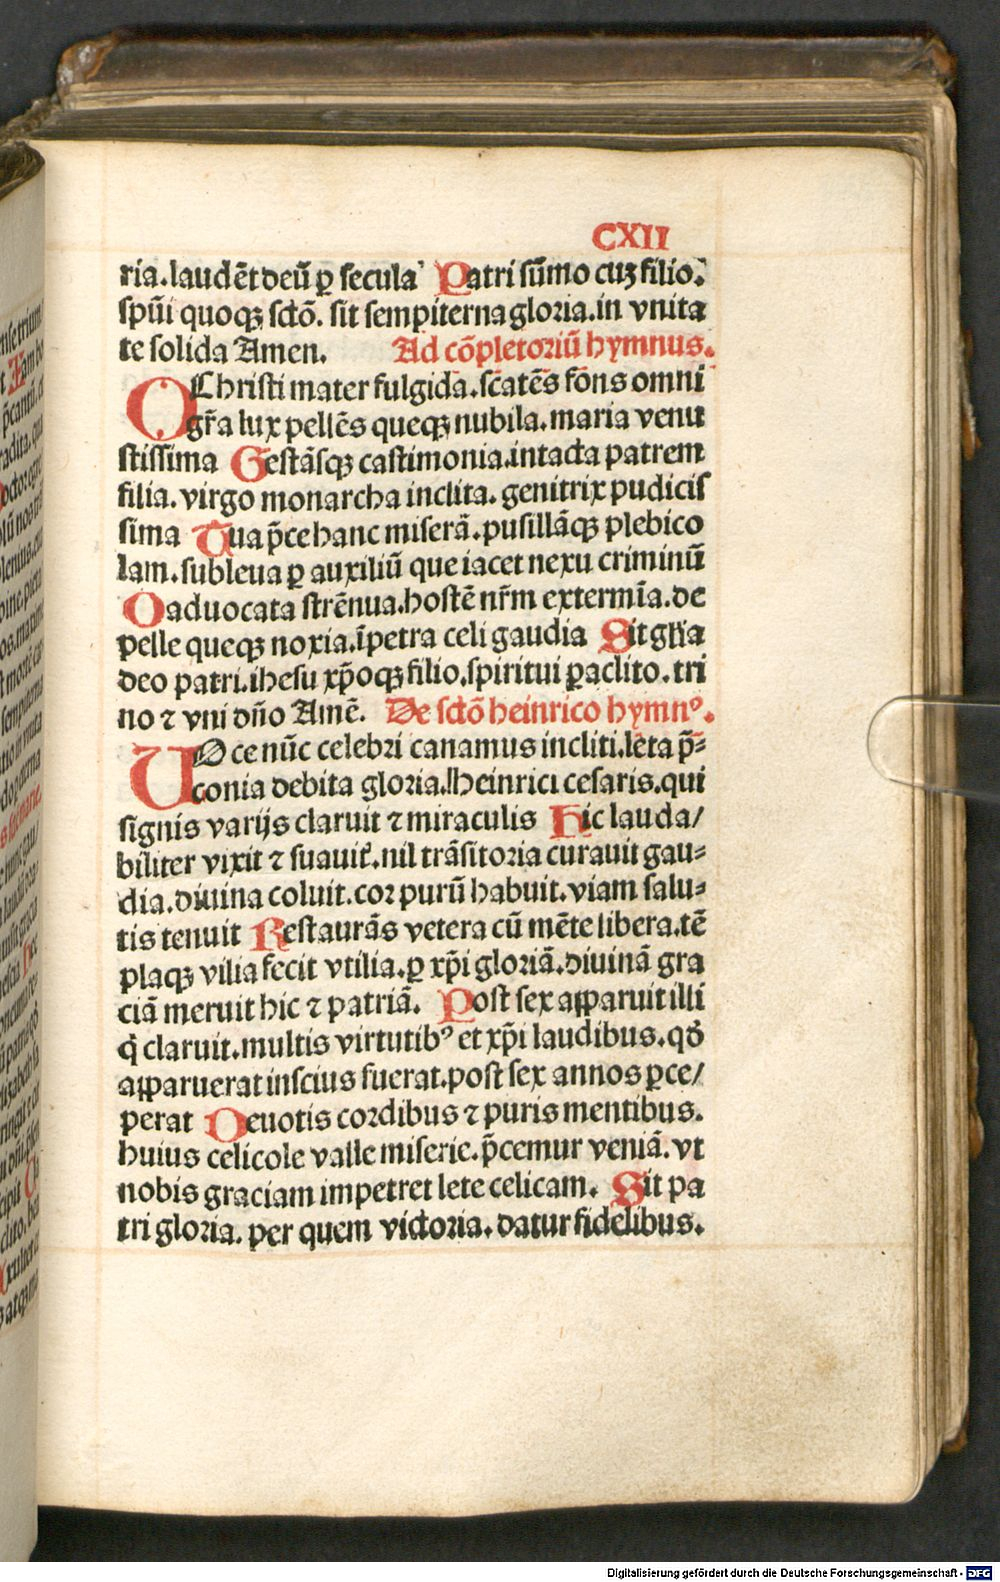 CXII
ria. laudēt deū ꝑ secula Patri sūmo cuꝫ filio.
spūi quoqꝫ sctō. sit sempiterna gloria. in vnita
te solida Amen. Ad cōpletoriū hymnus.
O Christi mater fulgida. scatēs fōns omni
gr̄a lux pellēs queqꝫ nubila. maria venu
stissima Gestāsqꝫ castimonia. intacta patrem
filia. virgo monarcha inclita. genitrix pudicis
sima Tua p̄ce hanc miserā. pusillāqꝫ plebico
lam. subleua ꝑ auxiliū que iacet nexu criminū
O aduocata strēnua. hostē nr̄m extermīa. de
pelle queqꝫ noxia. īpetra celi gaudia Sit gl̄ia
deo patri. ihesu xp̄oqꝫ filio. spiritui ꝑaclito. tri
no ⁊ vni dn̄o Amē. De sctō heinrico hymnꝰ.
UOce nūc celebri canamus incliti. leta p̄=
conia debita gloria. Heinrici cesaris. qui
signis varijs claruit ⁊ miraculis Hic lauda/
biliter vixit ⁊ suauit̄. nil trāsitoria curauit gau=
dia. diuina coluit. cor purū habuit. viam salu=
tis tenuit Restaurās vetera cū mēte libera. tē
plaqꝫ vilia fecit vtilia. ꝑ xp̄i gloriā. diuinā gra
ciā meruit hic ⁊ patriā. Post sex apparuit illi
q̇ claruit. multis virtutibꝰ et xp̄i laudibus. qđ
apparuerat inscius fuerat. post sex annos ꝑce/
perat Deuotis cordibus ⁊ puris mentibus.
huius celicole valle miserie. p̄cemur veniā. vt
nobis graciam impetret lete celicam. Sit pa
tri gloria. per quem victoria. datur fidelibus.
Digitalisierung gefördert durch die Deutsche Forschungsgemeinschaft - DFG